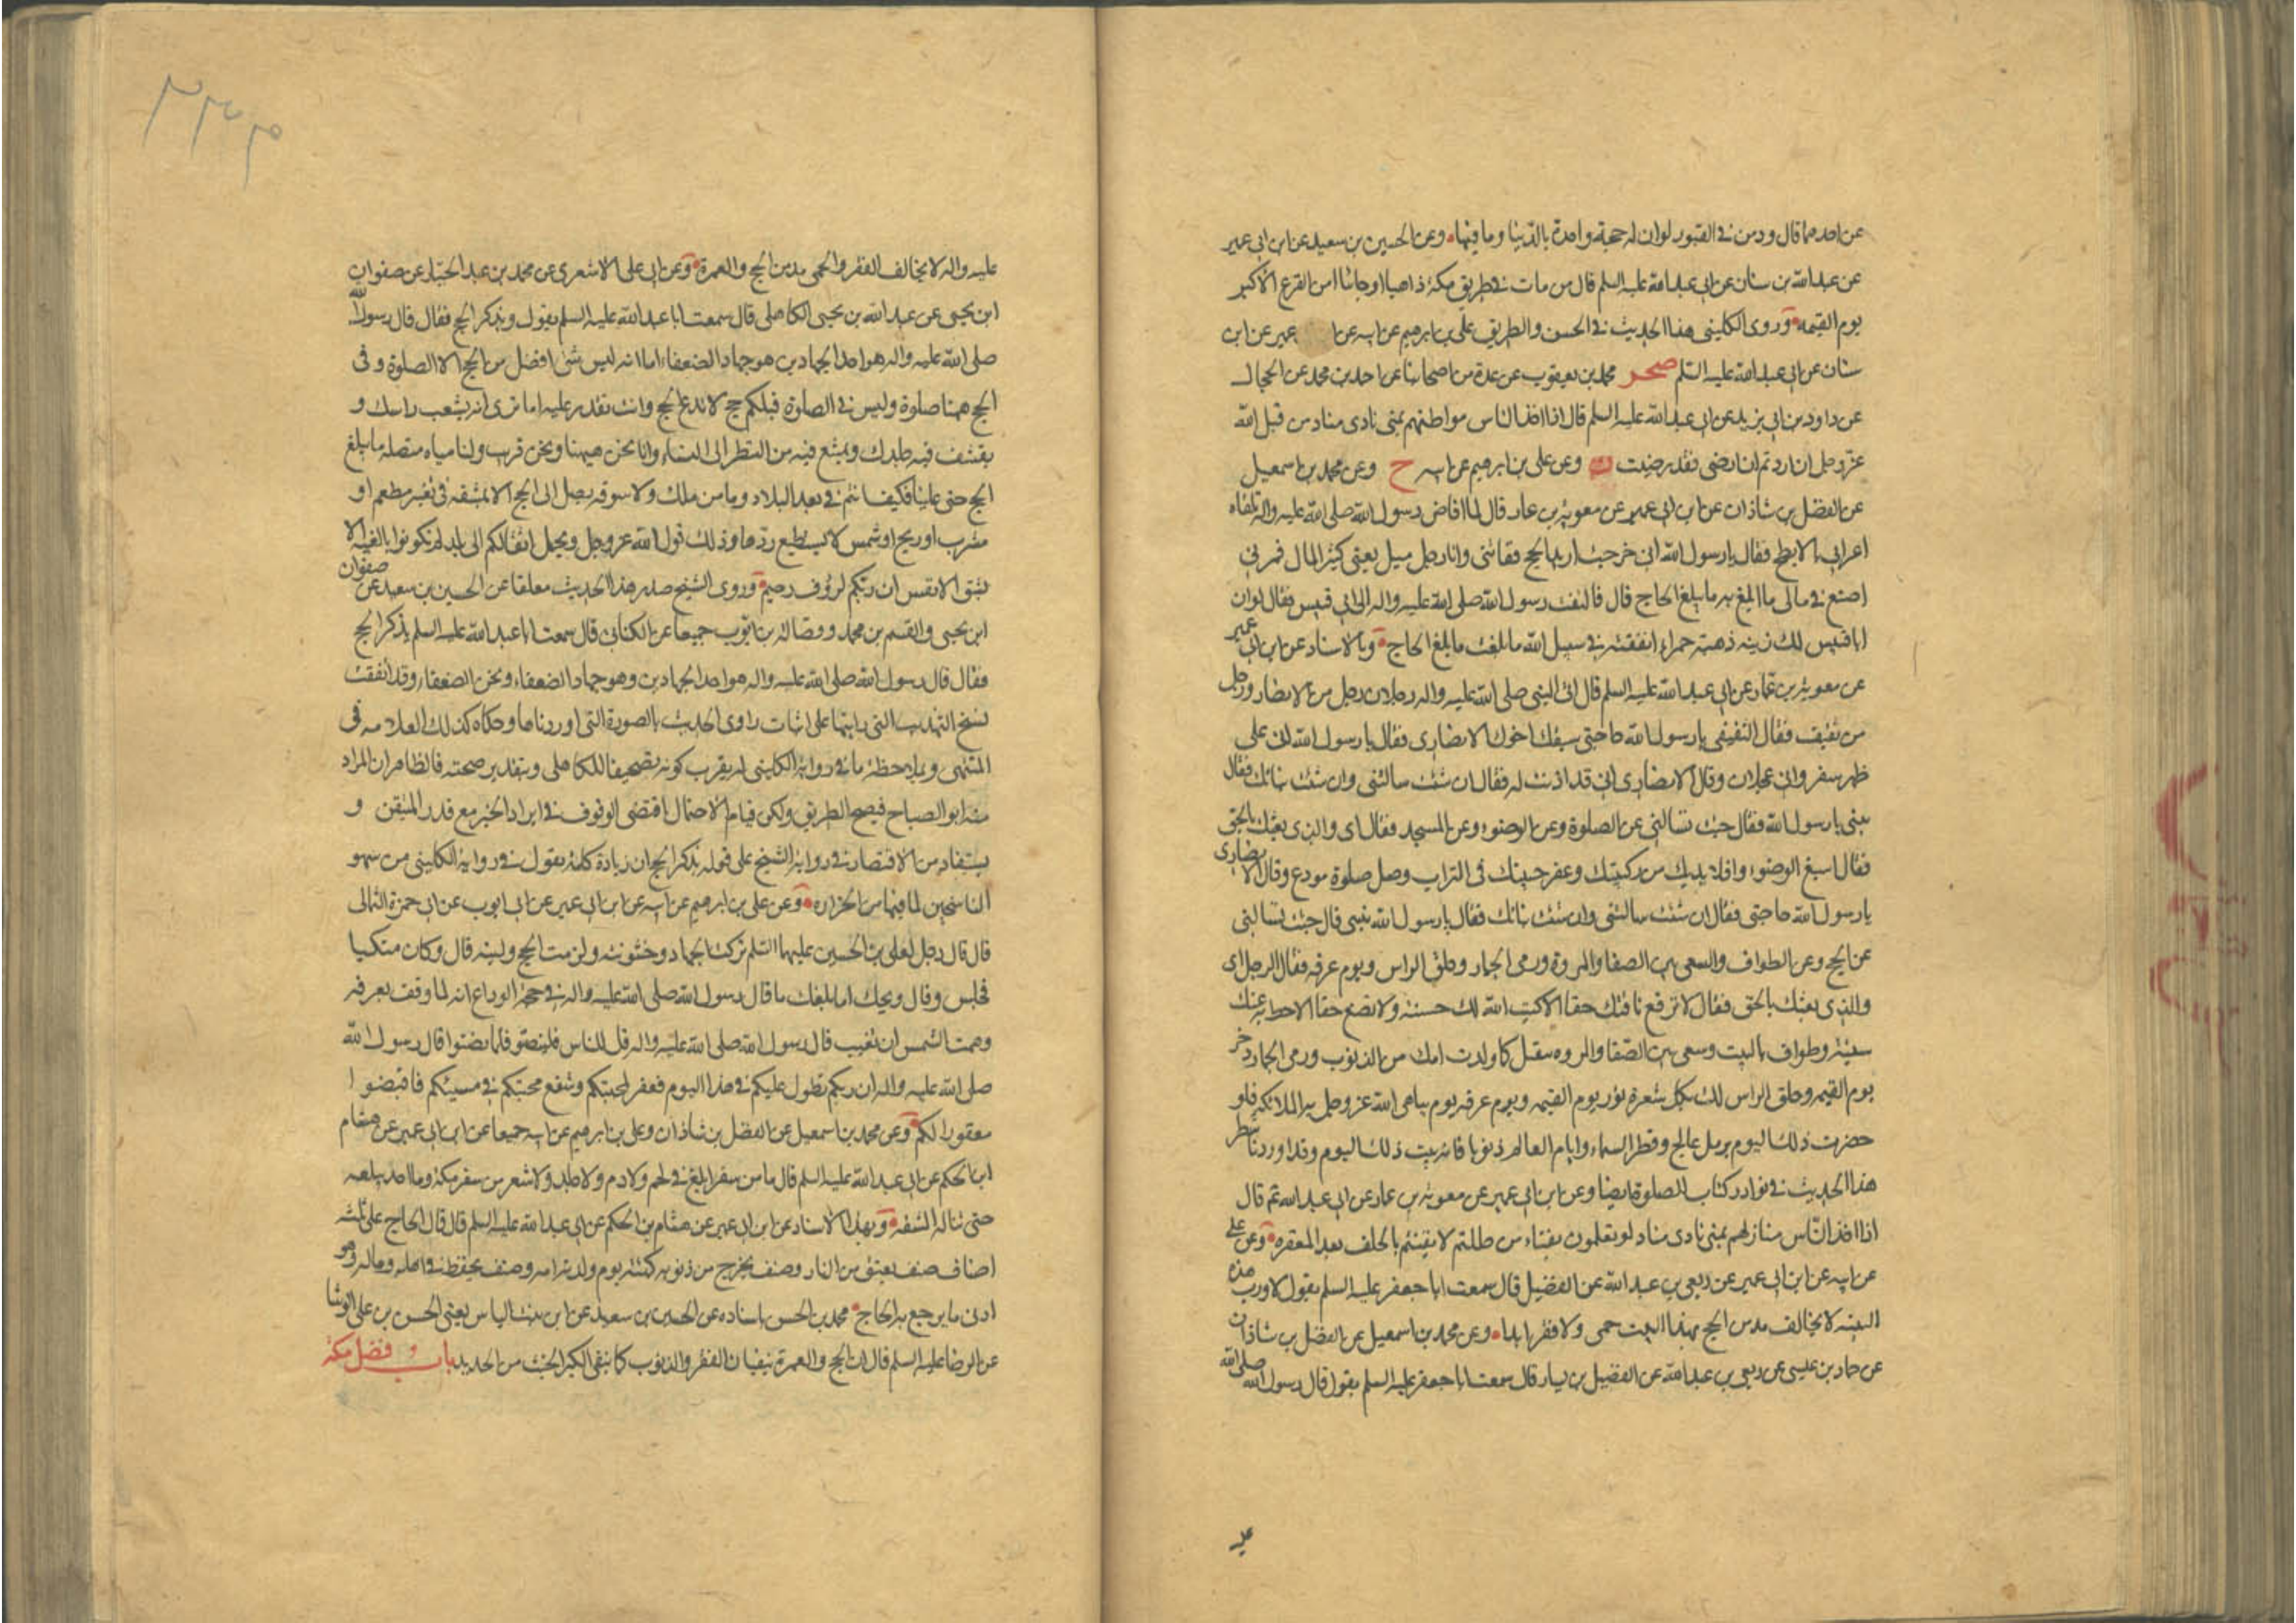 عن احدهما قال ود من في القبور لو ان له حجة واحدة بالدنيا وما فيها وعن الحسين بن سعيد عن ابن ابي عمير
عن عبد الله بن سنان عن ابي عبد الله عليه السلم قال من مات في طريق مكة ذاهبا او جائيا امن الفزع الاكبر
يوم القيمة وروى الكليني هذا الحديث في الحسن والطريق علي بن ابرهيم عن ابيه عن ا عمير عن ابن
سنان عن ابي عبد الله عليه السلم صحر محمد بن يعقوب عن عدة من اصحابنا عن احمد بن محمد عن الحجال
عن داود بن ابي يزيد عن ابي عبد الله عليه السلم قال اذا اخذ الناس مواطنهم بمنى نادى مناد من قبل الله
عز وجل ان اردتم ان ارضى فقد رضيت ن وعن علي بن ابرهيم عن ابيه ح وعن محمد بن اسمعيل
عن الفضل بن شاذان عن ابن ابي عمير عن معوية بن عمار قال لما افاض رسول الله صلى الله عليه واله تلقاه
اعرابي بالابطح فقال يا رسول الله اني خرجت اريد الحج فعاقني وانا رجل ميل يعني كثير المال فمرني
اصنع في مالي ما ابلغ به ما يبلغ الحاج قال فالتفت رسول الله صلى الله عليه واله الى ابي قبيس فقال لو ان
ابا قبيس لك زنته ذهبة حمراء انفقته في سبيل الله ما بلغت ما بلغ الحاج وبالاسناد عن ابن ابي عمير
عن معوية بن عمار عن ابي عبد الله عليه السلم قال اتى النبي صلى الله عليه واله رجلان رجل من الانصار ورجل
من ثقيف فقال الثقيفي يا رسول الله حاجتي سبقك اخوك الانصاري فقال يا رسول الله اني على
ظهر سفر واني عجلان وقال الانصاري اني قد اذنت له فقال ان شئت سالتني وان شئت نباتك فقال
نبئني يا رسول الله فقال جئت تسالني عن الصلوة وعن الوضوء وعن المسجد فقال اي والذي بعثك بالحق
فقال اسبغ الوضوء واملا يديك من ركبتيك وعفر جبينك في التراب وصل صلوة مودع وقال الانصاري
يا رسول الله حاجتي فقال ان شئت سالتني وان شئت نباتك فقال يا رسول الله نبئني قال جئت تسالني
عن الحج وعن الطواف والسعي بين الصفا والمروة ورمي الجمار وحلق الراس ويوم عرفه فقال الرجل اي
والذي بعثك بالحق فقال لا ترفع ناقتك خفا الا كتب الله لك حسنة ولا تضع خفا الا حط به عنك
سيئة وطواف بالبيت وسعي بين الصفا والمروه ينقيك كما ولدت امك من الذنوب ورمي الجمار ذخر
يوم القيمه وحلق الراس لك بكل شعرة نور يوم القيمه ويوم عرفه يوم يباهي الله عز وجل به الملائكه فلو
حضرت ذلك اليوم برمل عالج وقطر السماء وايام العالم ذنوبا فانه يبت ذلك اليوم وقد اوردنا شطر
هذا الحديث في نوادر كتاب الصلوة ايضا وعن ابن ابي عمير عن معوية بن عمار عن ابي عبد الله ع قال
اذا اخذ الناس منازلهم بمنى نادى مناد لو تعلمون بفناء من حللتم لايقنتم بالخلف بعد المغفره وعن علي
عن ابيه عن ابن ابي عمير عن ربعي بن عبد الله عن الفضيل قال سمعت ابا جعفر عليه السلم يقول لا ورب هذه
البنيه لا يخالف مدمن الحج بهذا البيت حمى ولا فقر ابدا وعن محمد بن اسمعيل عن الفضل بن شاذان
عن حماد بن عيسى عن ربعي بن عبد الله عن الفضيل بن يسار قال سمعت ابا جعفر عليه السلم يقول قال رسول الله صلى الله
عليه
٣٣٩
عليه واله لا يخالف الفقر والحمى مدمن الحج والعمرة وعن ابي علي الاشعري عن محمد بن عبد الجبار عن صفوان
ابن يحيى عن عبد الله بن يحيى الكاهلي قال سمعت ابا عبد الله عليه السلم يقول ويذكر الحج فقال قال رسول الله
صلى الله عليه واله هو احد الجهادين هو جهاد الضعفاء اما انه ليس شئ افضل من الحج الا الصلوة وفي
الحج ههنا صلوة وليس في الصلوة قبلكم حج لا تدع الحج وانت تقدر عليه اما ترى انه يشعث راسك و
يقشف فيه جلدك ويمتنع فيه من النظر الى النساء وانا نحن هيهنا ونحن قريب ولنا مياه متصله ما يبلغ
الحج حتى علينا فكيف انتم في بعد البلاد وما من ملك ولا سوقه يصل الى الحج الا بمشقه في تغير مطعم او
مشرب او ريح او شمس لا يستطيع ردها وذلك قول الله عز وجل وتحمل اثقالكم الى بلد لم تكونوا بالغيه الا
بشق الانفس ان ربكم لرؤف رحيم وروى الشيخ صدر هذا الحديث معلقا عن الحسين بن سعيد عن صفوان
ابن يحيى والقسم بن محمد وفضالة بن ايوب جميعا عن الكناني قال سمعت ابا عبد الله عليه السلم يذكر الحج
فقال قال رسول الله صلى الله عليه واله هو احد الجهادين وهو جهاد الضعفاء ونحن الضعفاء وقد اتفقت
نسخ التهذيب التي رايتها على اثبات راوي الحديث بالصورة التي اوردناها وحكاه كذلك العلامه في
المنتهى وبملاحظة ما في رواية الكليني له يقرب كونه تصحيفا للكاهلي وبتقدير صحته فالظاهر ان المراد
منه ابو الصباح فيصح الطريق ولكن قيام الاحتمال اقتضى الوقوف في ايراد الخبر مع قدر المتيقن و
يستفاد من الاقتصار في رواية الشيخ على قوله يذكر الحج ان زيادة كلمة يقول في رواية الكليني من سهو
الناسخين لما فيها من الحزازه وعن علي بن ابرهيم عن ابيه عن ابن ابي عمير عن ابي ايوب عن ابي حمزة الثمالي
قال قال رجل لعلي بن الحسين عليهما السلم تركت الجهاد وخشونته ولزمت الحج ولينه قال وكان متكيا
فجلس وقال ويحك اما بلغك ما قال رسول الله صلى الله عليه واله في حجة الوداع انه لما وقف بعرفه
وهمت الشمس ان تغيب قال رسول الله صلى الله عليه واله قل للناس فلينصتو فلما نصتوا قال رسول الله
صلى الله عليه واله ان ربكم تطول عليكم في هذا اليوم فغفر لمحسنكم وشفع محسنكم في مسيئكم فافيضوا
مغفورا لكم وعن محمد بن اسمعيل عن الفضل بن شاذان وعلي بن ابرهيم عن ابيه جميعا عن ابن ابي عمير عن هشام
ابن الحكم عن ابي عبد الله عليه السلم قال ما من سفر ابلغ في لحم ولا دم ولا جلد ولا شعر من سفر مكة وما احد يبلغه
حتى تناله المشقه وبهذا الاسناد عن ابن ابي عمير عن هشام بن الحكم عن ابي عبد الله عليه السلم قال قال الحاج على ثلثه
اصناف صنف يعتق من النار وصنف يخرج من ذنوبه كهيئة يوم ولدته امه وصنف يحفظ في اهله وماله وهو
ادنى ما يرجع به الحاج محمد بن الحسن باسناده عن الحسين بن سعيد عن ابن بنت الياس يعني الحسن بن علي الوشا
عن الرضا عليه السلم قال ان الحج والعمرة ينفيان الفقر والذنوب كما ينفي الكير الخبث من الحديد باب فضل مكة